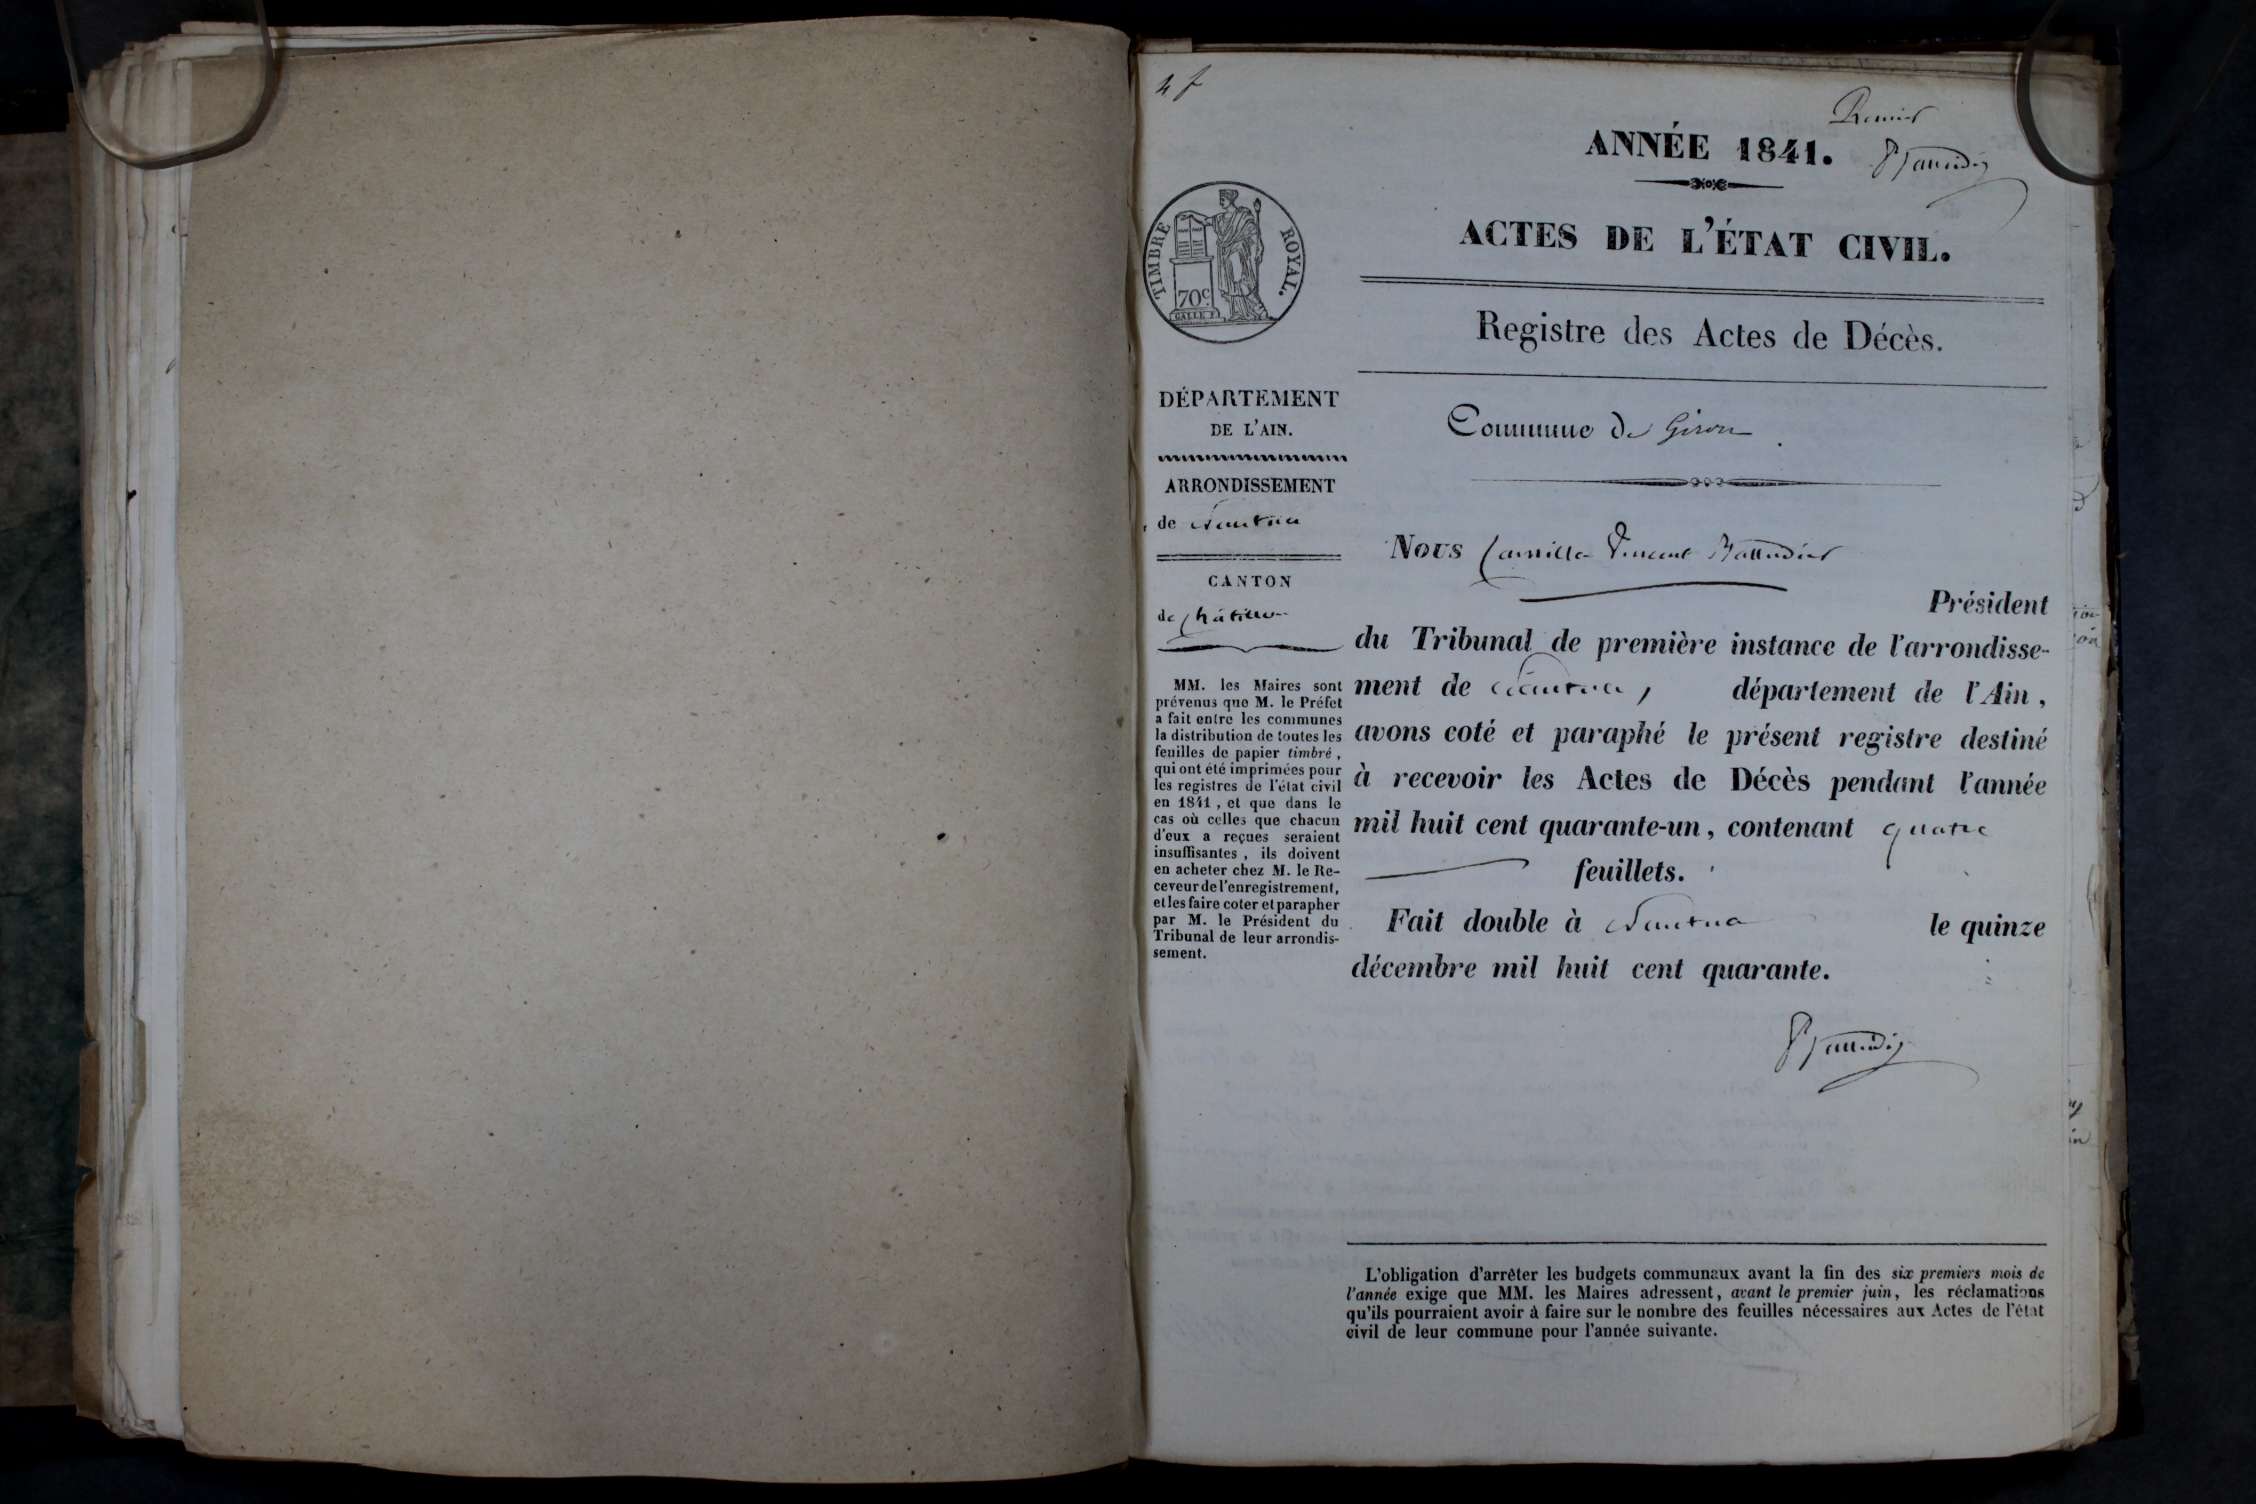 4 f
Premier
ANNÉE 1841.
ACTES DE L'ÉTAT CIVIL.
Registre des Actes de Décès.
Commune de Giron
TIMBRE ROYAL.
70c
GALLE F.
DÉPARTEMENT
DE L'AIN.
ARRONDISSEMENT
de Nantua
CANTON
de Châtillon
MM. les Maires sont
prévenus que M. le Préfet
a fait entre les communes
la distribution de toutes les
feuilles de papier timbré,
qui ont été imprimées pour
les registres de l'état civil
en 1841, et que dans le
cas où celles que chacun
d'eux a reçues seraient
insuffisantes, ils doivent
en acheter chez M. le Re-
ceveur de l'enregistrement,
et les faire coter et parapher
par M. le Président du
Tribunal de leur arrondis-
sement.
Nous Camille Vincent
Président
du Tribunal de première instance de l'arrondisse-
ment de Nantua, département de l'Ain,
avons coté et paraphé le présent registre destiné
à recevoir les Actes de Décès pendant l'année
mil huit cent quarante-un, contenant quatre
feuillets.
Fait double à Nantua le quinze
décembre mil huit cent quarante.
L'obligation d'arrêter les budgets communaux avant la fin des six premiers mois de
l'année exige que MM. les Maires adressent, avant le premier juin, les réclamations
qu'ils pourraient avoir à faire sur le nombre des feuilles nécessaires aux Actes de l'état
civil de leur commune pour l'année suivante.